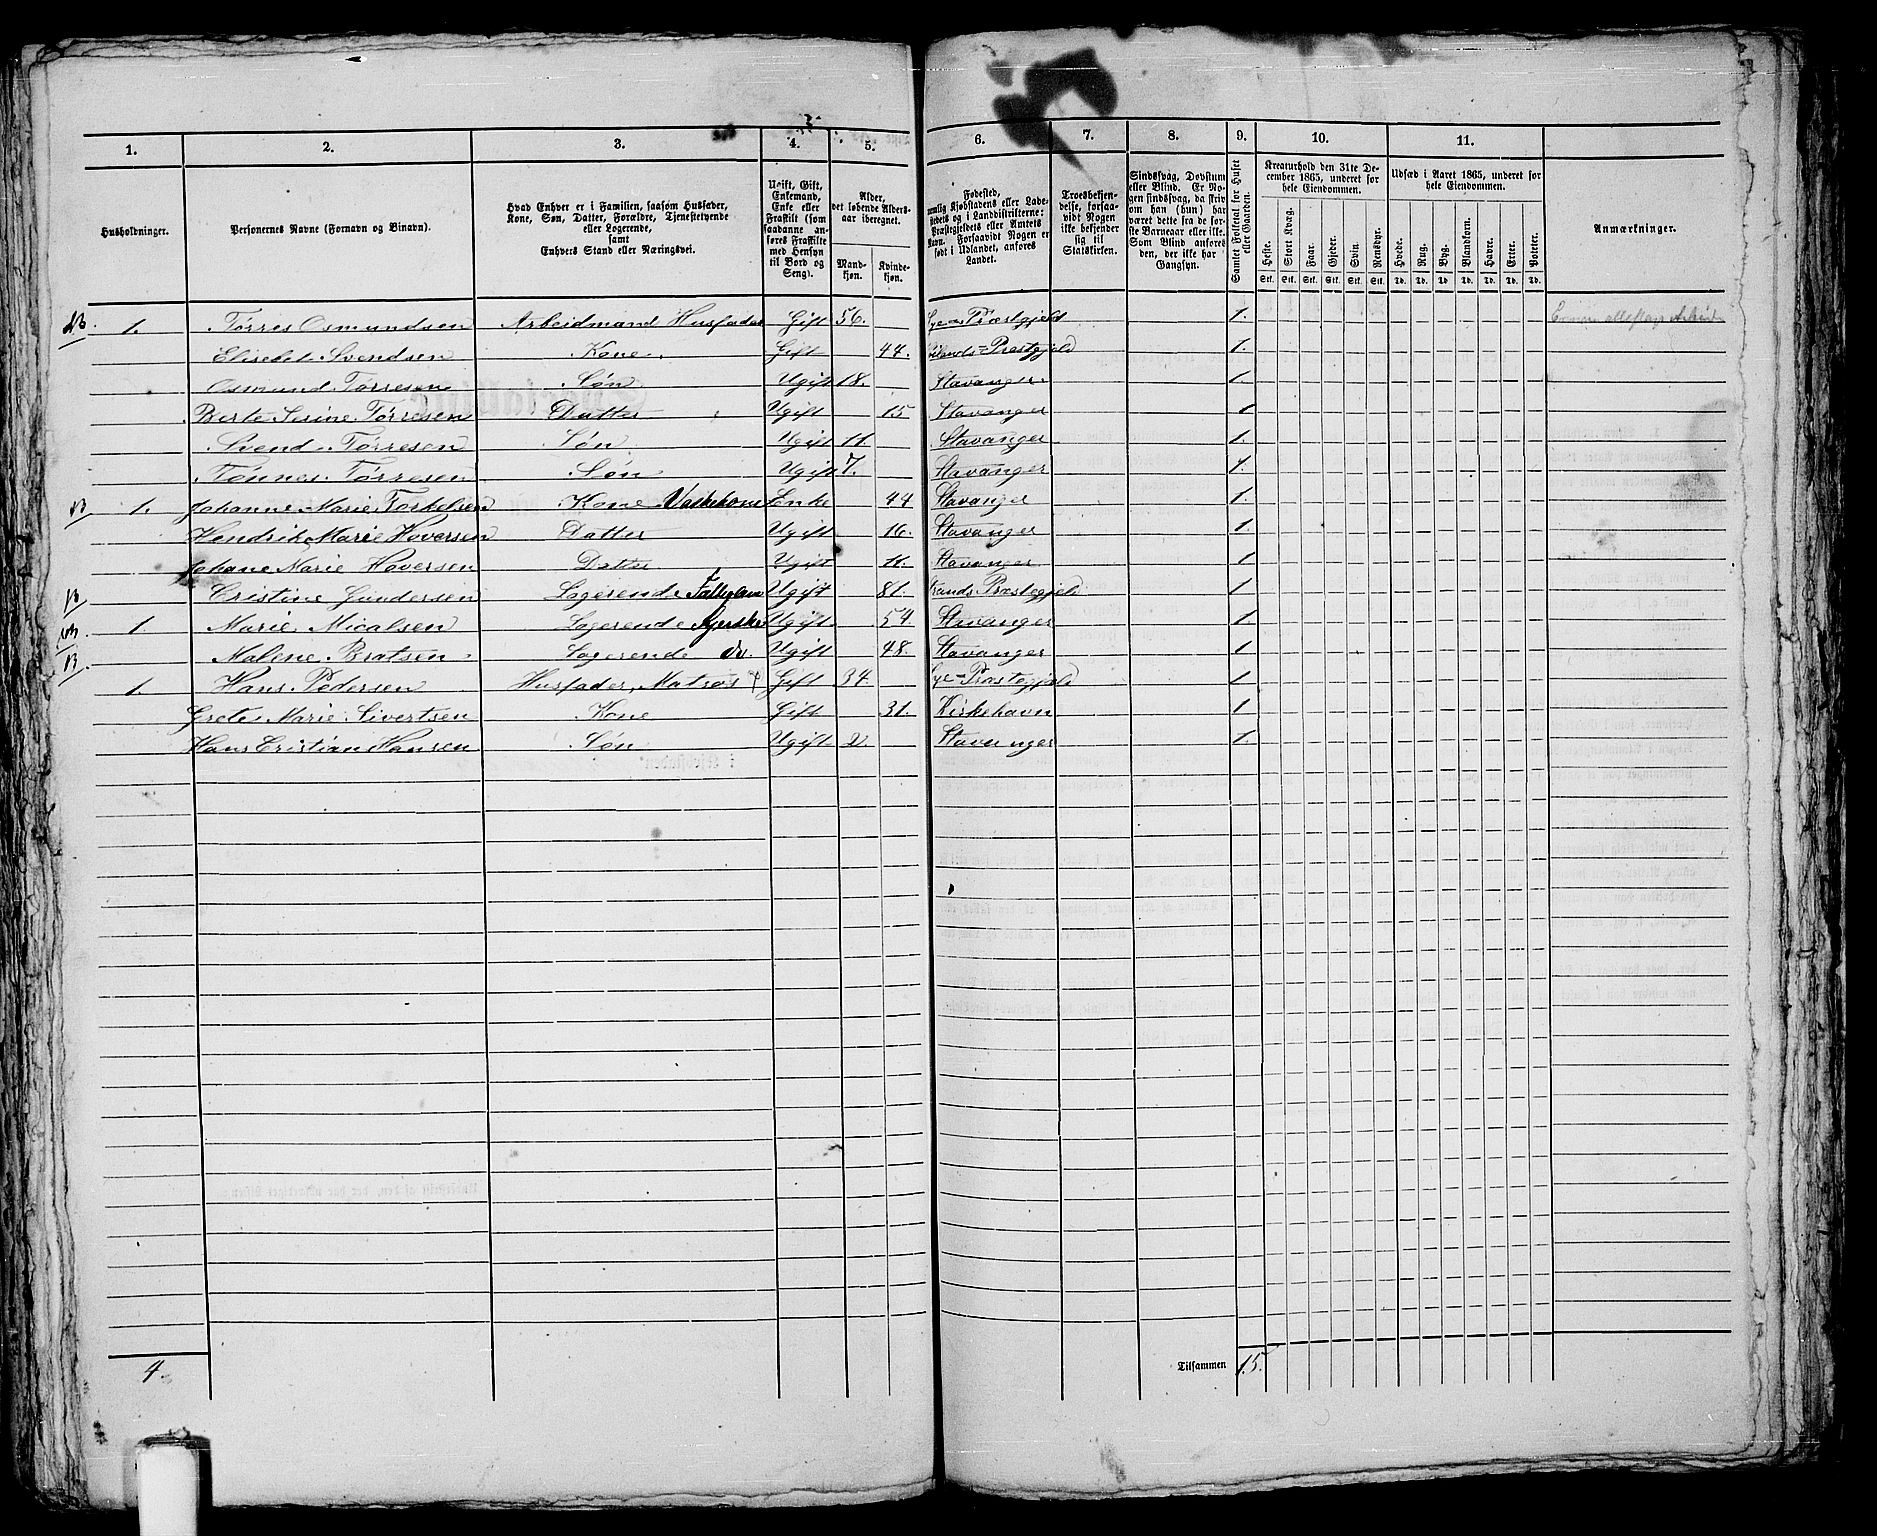 1. 2. 3. 4. 5. 6. 7. 8. 9. 10. 11.
Husholdninger.
Personernes Navne (Fornavn og Binavn).
Hvad Enhver er i Familien, saasom Husfader, Kone, Søn, Datter, Forældre, Tjenestetyende eller Logerende, samt Enhvers Stand eller Næringsvei.
Ugift, Gift, Enkemand, Enke eller Fraskilt (som saadanne anføres Fraskilte med Hensyn til Bord og Seng).
Alder, det løbende Aldersaar iberegnet.
Mandkjøn. Kvindekjøn.
Fødested, nemlig Kjøbstadens eller Ladestedets og i Landdistrikterne: Præstegjeldets eller Amtets Navn. Forsaavidt Nogen er født i Udlandet, anføres Landet.
Troesbekjendelse, forsaavidt Nogen ikke bekjender sig til Statskirken.
Sindssvag, Døvstum eller Blind. Er Nogen sindssvag, da skrives om han (hun) har været dette fra de første Barneaar eller ikke. Som Blind anføres den, der ikke har Gangsyn.
Samlet Folketal for Huset eller Gaarden.
Kreaturhold den 31te December 1865, underet for hele Eiendommen.
Heste. Stort Kvæg. Faar. Gjeder. Svin. Rensdyr.
Stk. Stk. Stk. Stk. Stk. Stk.
Udsæd i Aaret 1865, underet for hele Eiendommen.
Hvede. Rug. Byg. Blandkorn. Havre. Erter. Poteter.
Td. Td. Td. Td. Td. Td. Td.
Anmærkninger.
1. Tørres Osmundsen Arbeidmand Husfader Gift 56. Præstgjeld 1.
Elisebet Svendsen Kone. Gift 44. Præstgjeld 1.
Osmund Tørresen Søn Ugift 18. Stavanger 1.
Berte Serine Tørresen Datter Ugift 15 Stavanger 1
Svend Tørresen Søn Ugift 11. Stavanger 1.
Tønnes Tørresen Søn Ugift 7. Stavanger 1.
1. Johanne Marie Torkelsen Kone Vaskekone Enke 44 Stavanger 1.
Hendrik Marie Hoversen Datter Ugift 16. Stavanger 1.
Johane Marie Hoversen Datter Ugift 11. Stavanger 1
Cristine Gundersen Logerende Ugift 81. Strands Præstegjeld 1
1. Marie Micalsen Logerende Ugift 54. Stavanger 1
Malene Bratsen Logerende do. Ugift 48. Stavanger 1
1. Hans Pedersen Husfader, Matros Gift 34. Præstegjeld 1
Grete Marie Sivertsen Kone Gift 31. Kirkehavn 1
Hans Cristian Hansen Søn Ugift 2. Stavanger 1.
4. Tilsammen 15.